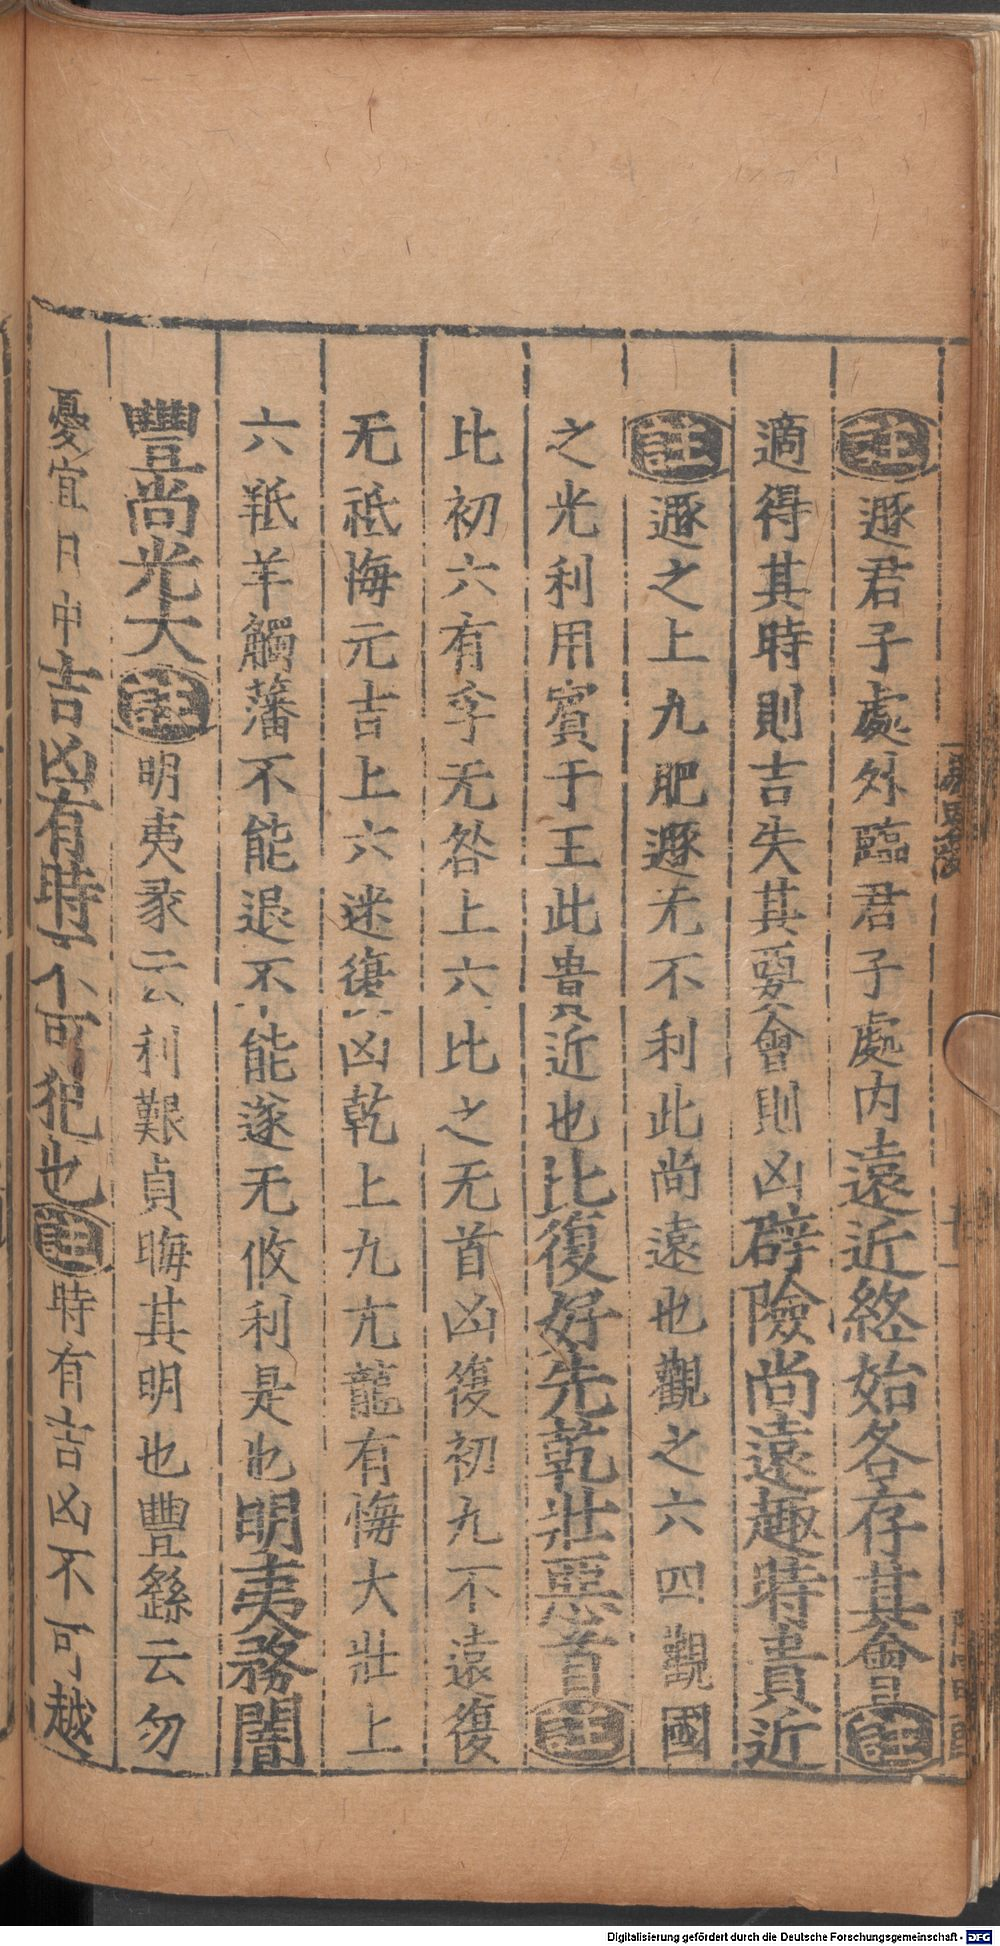 註遯君子處外臨君子處内遠近終始各存其會註
適得其時則吉失其要會則凶辟險尚遠趣時貴近
註遯之上九肥遯无不利此尚遠也觀之六四觀國
之光利用賓于王此貴近也比復好先乾壯惡首註
比初六有孚无咎上六比之无首凶復初九不遠復
无祗悔元吉上六迷復凶乾上九亢龍有悔大壯上
六羝羊觸藩不能退不能遂无攸利是也明夷務闇
豐尚光大註明夷彖云利艱貞晦其明也豐繇云勿
憂宜日中吉凶有時不可犯也註時有吉凶不可越
Digitalisierung gefördert durch die Deutsche Forschungsgemeinschaft - DFG